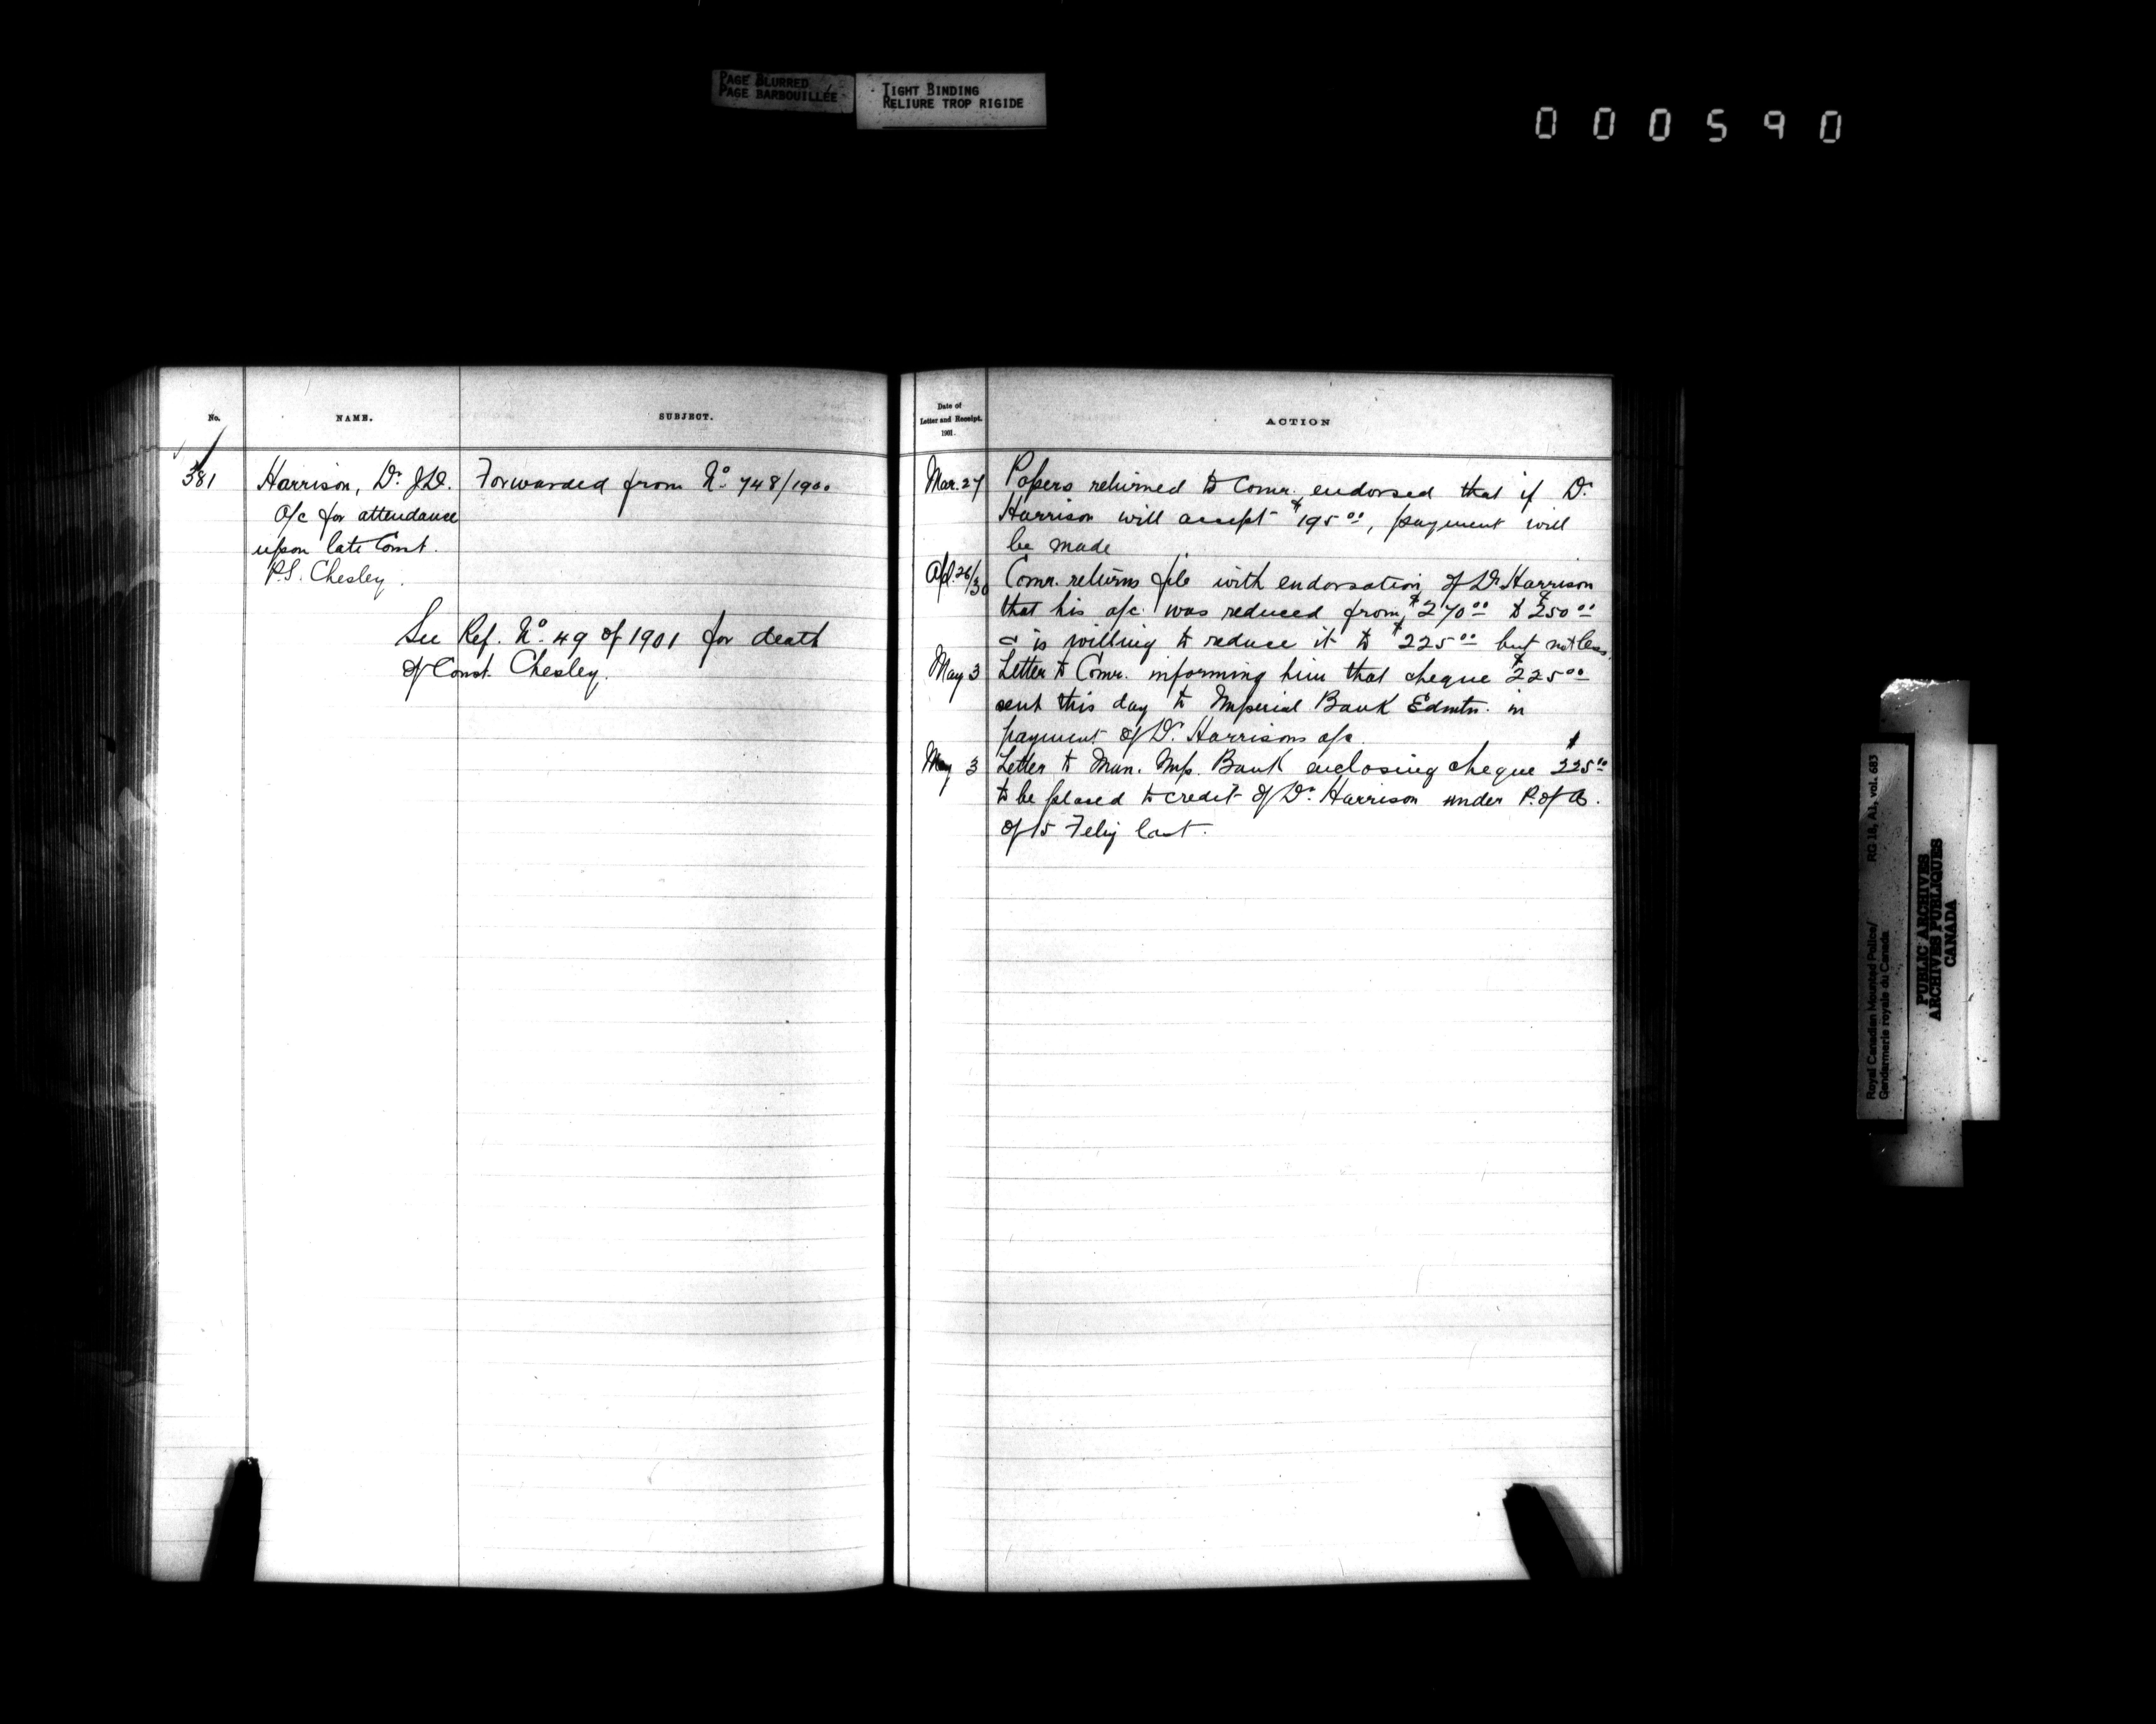 PAGE BLURRED
PAGE BARBOUILLÉE
TIGHT BINDING
RELIURE TROP RIGIDE
000590
No.
NAME.
SUBJECT.
381
Harrison, Dr. J.D.
a/c for attendance
upon late Const.
P.S. Chesley.
Forwarded from No. 748/1900
See Ref. No. 49 of 1901 for death
of Const. Chesley.
Date of
Letter and Receipt.
1901.
ACTION
Mar. 27 Papers returned to Comr. endorsed that if Dr.
Harrison will accept $195.00, payment will
be made
Apl. 26/30 Comr. returns file with endorsation of Dr Harrison
that his a/c. was reduced from $270.00 to $250.00
& is willing to reduce it to $225.00 but not less.
May 3 Letter to Comr. informing him that cheque $225.00
sent this day to Imperial Bank Edmtn. in
payment of Dr. Harrisons a/c.
May 3 Letter to Man. Imp. Bank enclosing cheque $225.00
to be placed to credit of Dr. Harrison under P. of A.
of 15 Feby last.
Royal Canadian Mounted Police/ RG 18, A1, vol. 683
Gendarmerie royale du Canada
PUBLIC ARCHIVES
ARCHIVES PUBLIQUES
CANADA